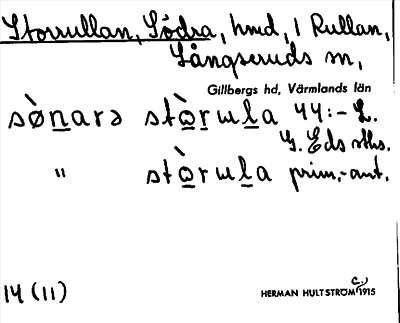 Storrullan, Södra, hmd, 1 Rullan,
Långseruds sn,
Gillbergs hd, Värmlands län
sø̀narə stò̱ṟɯḻa 44:- L.
G. Eds sths.
" stò̱ṟɯḻa prim.-ant.
14 (11)
HERMAN HULTSTRÖM 1915